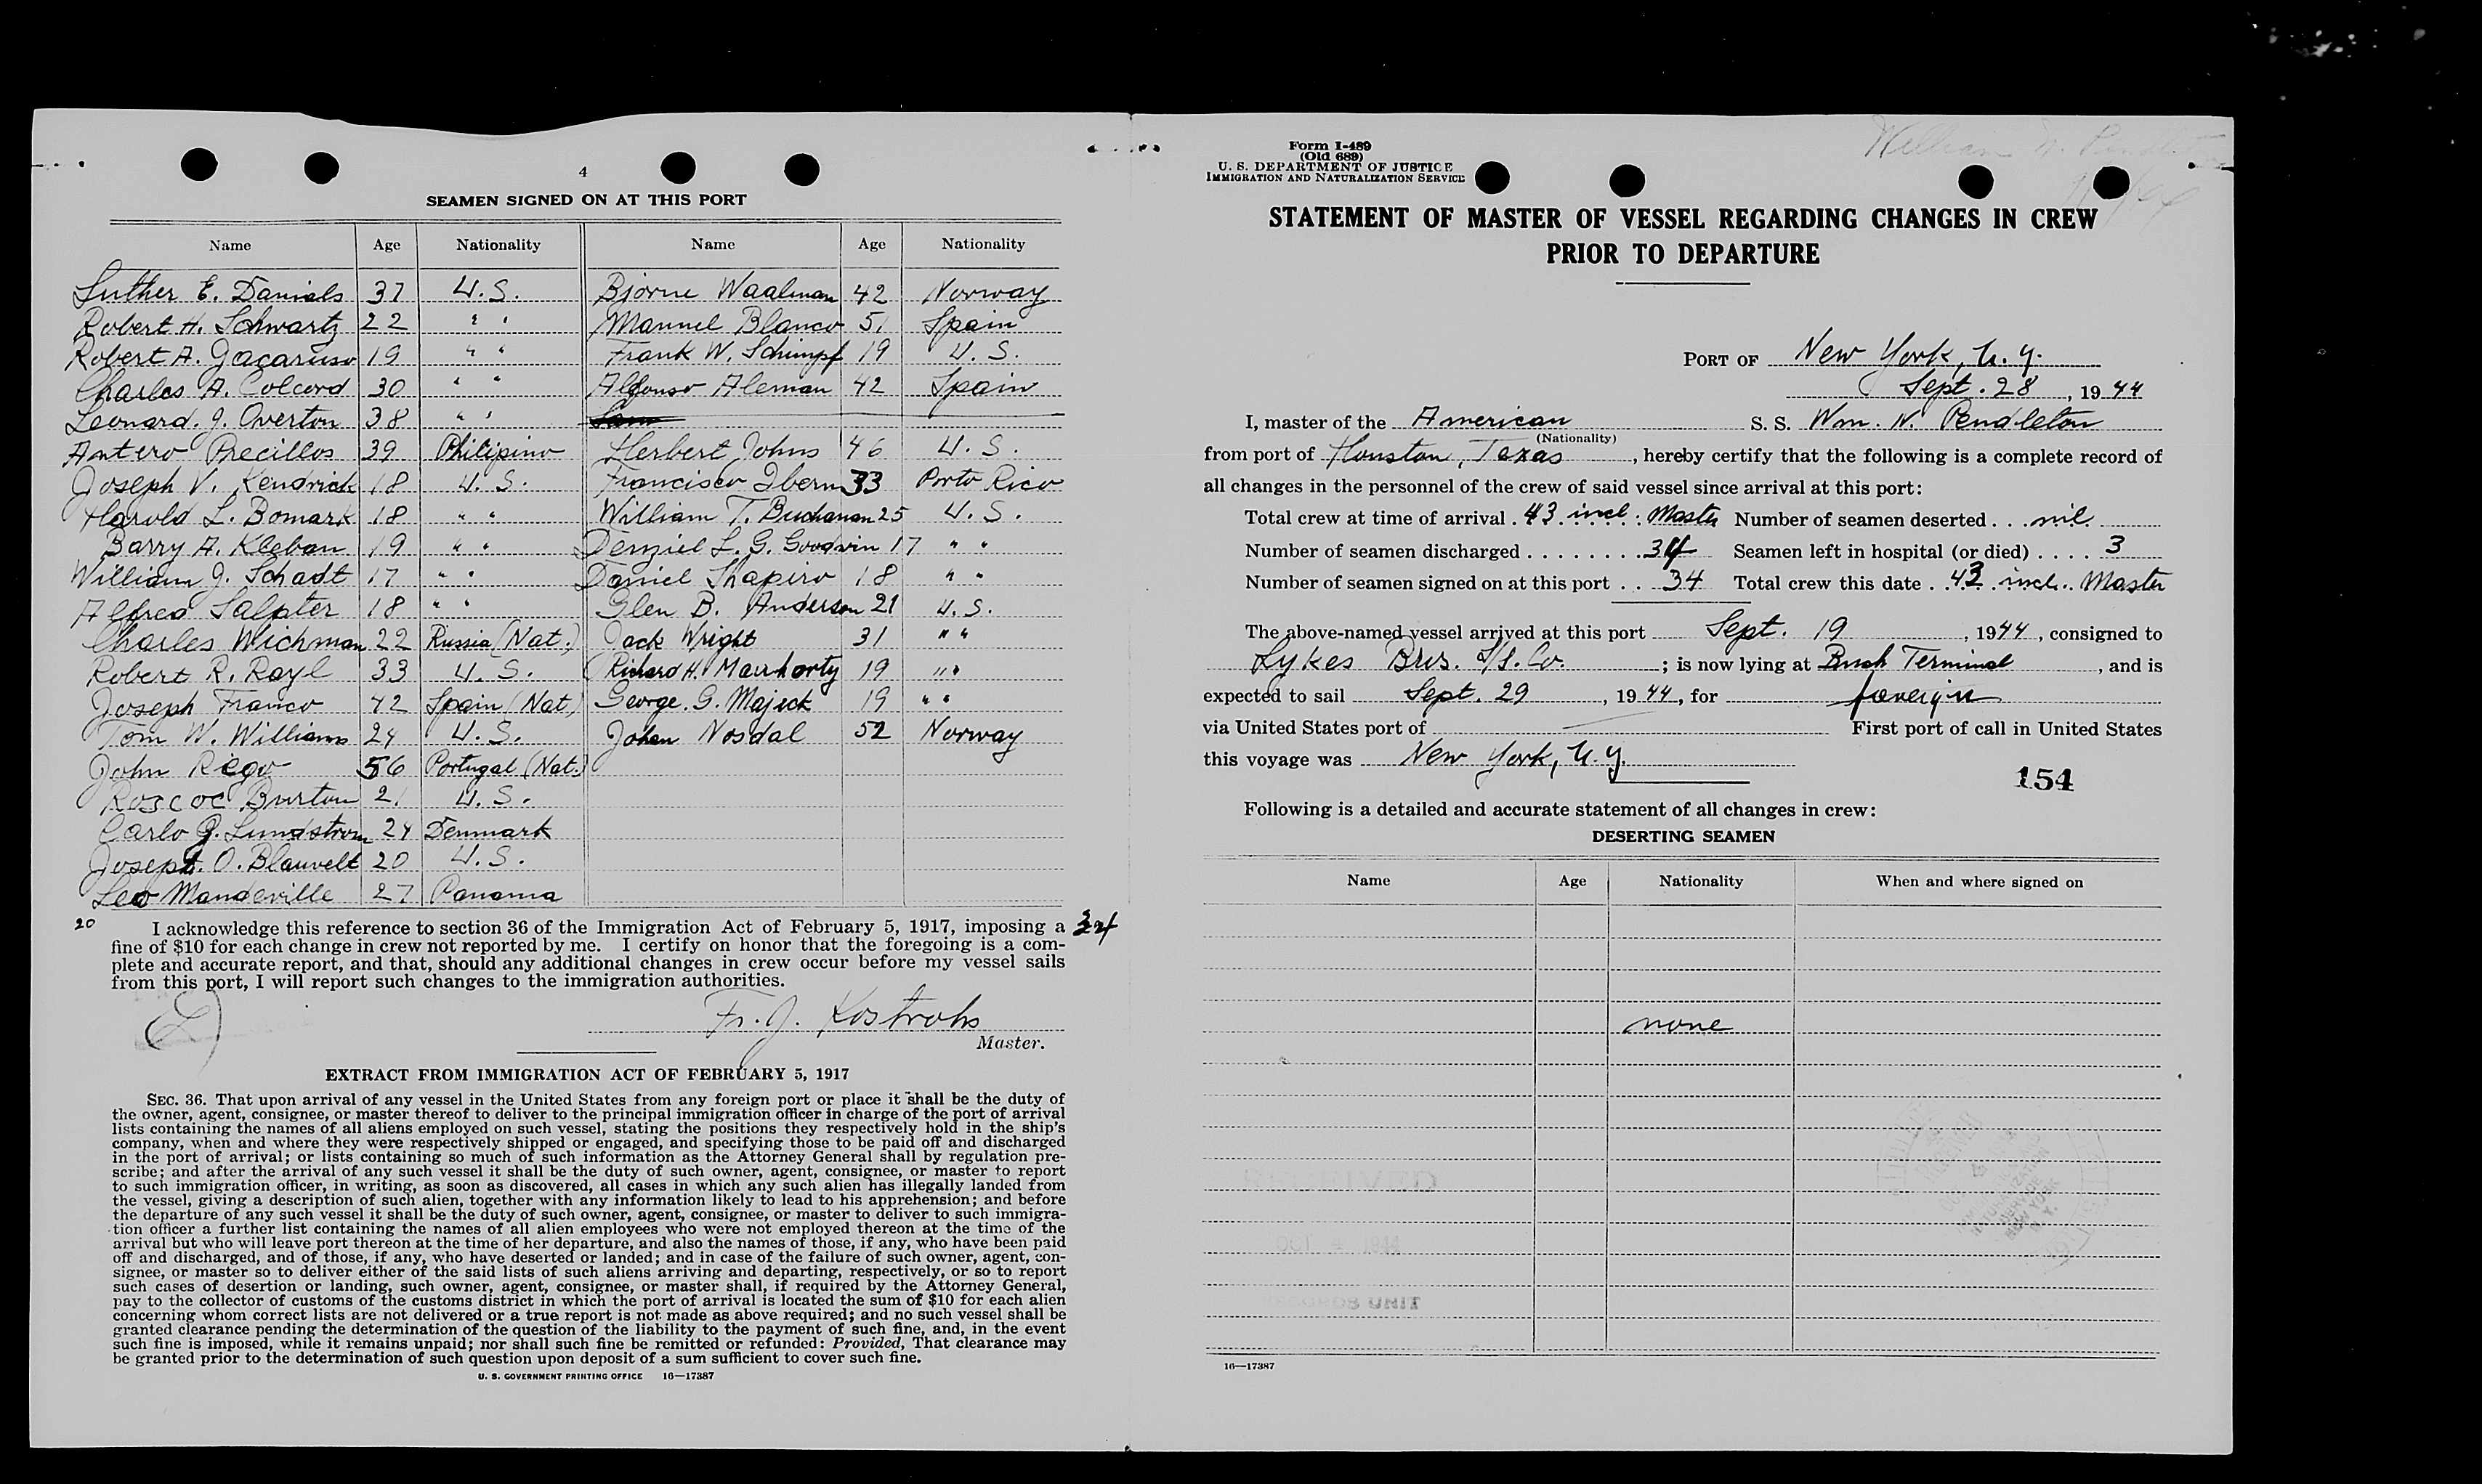 4
SEAMEN SIGNED ON AT THIS PORT
Name Age Nationality Name Age Nationality
Luther E. Daniels 37 U.S. Bjorne Waalman 42 Norway
Robert H. Schwartz 22 " " Manuel Blanco 51 Spain
Robert A. Jacaruso 19 " " Frank W. Schimpf 19 U.S.
Charles A. Colcord 30 " " Alfonso Aleman 42 Spain
Leonard J. Overton 38 " "
Antero Precillos 39 Philipino Herbert Johns 46 U.S.
Joseph V. Kendrick 18 U.S. Francisco Ibern 33 Porto Rico
Harold L. Bomark 18 " " William T. Buchanan 25 U.S.
Barry A. Kleban 19 " " Denziel L. G. Goodwin 17 " "
William J. Schadt 17 " " Daniel Shapiro 18 " "
Alfred Salpter 18 " " Glen B. Anderson 21 U.S.
Charles Wichman 22 Russia (Nat.) Jack Wright 31 " "
Robert R. Rayl 33 U.S. Richard H. 19 " "
Joseph Franco 42 Spain (Nat.) George G. Majeck 19 " "
Tom W. Williams 24 U.S. Johan Nosdal 52 Norway
John Rego 56 Portugal (Nat.)
Roscoe Burton 21 U.S.
Carlo G. Lundstrom 24 Denmark
Joseph O. Blauvelt 20 U.S.
Leo Mandeville 27 Panama
20
I acknowledge this reference to section 36 of the Immigration Act of February 5, 1917, imposing a 34
fine of $10 for each change in crew not reported by me. I certify on honor that the foregoing is a com-
plete and accurate report, and that, should any additional changes in crew occur before my vessel sails
from this port, I will report such changes to the immigration authorities.
Fr. J. Kostrohs
Master.
EXTRACT FROM IMMIGRATION ACT OF FEBRUARY 5, 1917
SEC. 36. That upon arrival of any vessel in the United States from any foreign port or place it shall be the duty of
the owner, agent, consignee, or master thereof to deliver to the principal immigration officer in charge of the port of arrival
lists containing the names of all aliens employed on such vessel, stating the positions they respectively hold in the ship's
company, when and where they were respectively shipped or engaged, and specifying those to be paid off and discharged
in the port of arrival; or lists containing so much of such information as the Attorney General shall by regulation pre-
scribe; and after the arrival of any such vessel it shall be the duty of such owner, agent, consignee, or master to report
to such immigration officer, in writing, as soon as discovered, all cases in which any such alien has illegally landed from
the vessel, giving a description of such alien, together with any information likely to lead to his apprehension; and before
the departure of any such vessel it shall be the duty of such owner, agent, consignee, or master to deliver to such immigra-
tion officer a further list containing the names of all alien employees who were not employed thereon at the time of the
arrival but who will leave port thereon at the time of her departure, and also the names of those, if any, who have been paid
off and discharged, and of those, if any, who have deserted or landed; and in case of the failure of such owner, agent, con-
signee, or master so to deliver either of the said lists of such aliens arriving and departing, respectively, or so to report
such cases of desertion or landing, such owner, agent, consignee, or master shall, if required by the Attorney General,
pay to the collector of customs of the customs district in which the port of arrival is located the sum of $10 for each alien
concerning whom correct lists are not delivered or a true report is not made as above required; and no such vessel shall be
granted clearance pending the determination of the question of the liability to the payment of such fine, and, in the event
such fine is imposed, while it remains unpaid; nor shall such fine be remitted or refunded: Provided, That clearance may
be granted prior to the determination of such question upon deposit of a sum sufficient to cover such fine.
U. S. GOVERNMENT PRINTING OFFICE 16—17387
William N. Pendleton
Form I-489
(Old 689)
U. S. DEPARTMENT OF JUSTICE
IMMIGRATION AND NATURALIZATION SERVICE
STATEMENT OF MASTER OF VESSEL REGARDING CHANGES IN CREW
PRIOR TO DEPARTURE
PORT OF New York, N.Y.
Sept. 28, 1944
I, master of the American S. S. Wm. N. Pendleton
(Nationality)
from port of Houston, Texas, hereby certify that the following is a complete record of
all changes in the personnel of the crew of said vessel since arrival at this port:
Total crew at time of arrival . 43 incl. Master Number of seamen deserted . . . nil
Number of seamen discharged . . . . . . . . 34 Seamen left in hospital (or died) . . . . 3
Number of seamen signed on at this port . . . 34 Total crew this date . 43 incl. Master
The above-named vessel arrived at this port Sept. 19, 1944, consigned to
Lykes Bros. S/S. Co. ; is now lying at Bush Terminal, and is
expected to sail Sept. 29, 1944, for foreign
via United States port of First port of call in United States
this voyage was New York, N.Y.
154
Following is a detailed and accurate statement of all changes in crew:
DESERTING SEAMEN
Name Age Nationality When and where signed on
none
RECEIVED
OCT 4 1944
RECORDS UNIT
16—17387